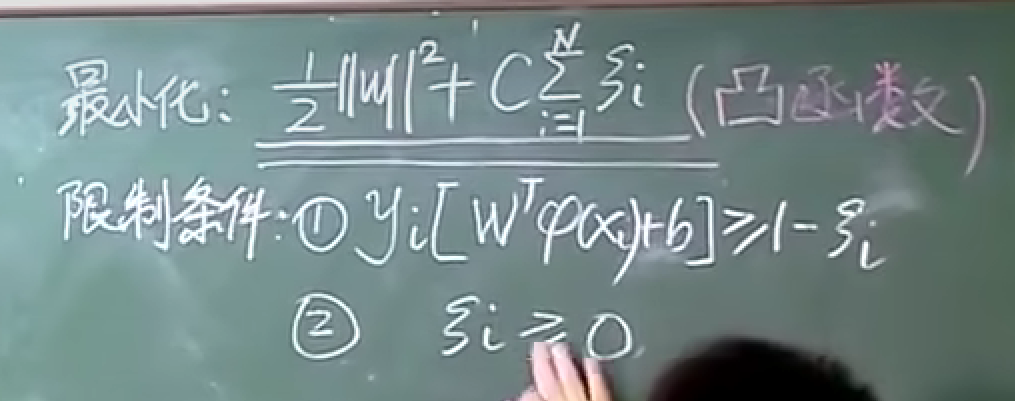 最小化: 1/2||W||² + C∑ᵢ₌₁ᴺ ξi (凸函数)
限制条件:① yi[Wᵀφ(xi)+b]≥1-ξi
② ξi≥0